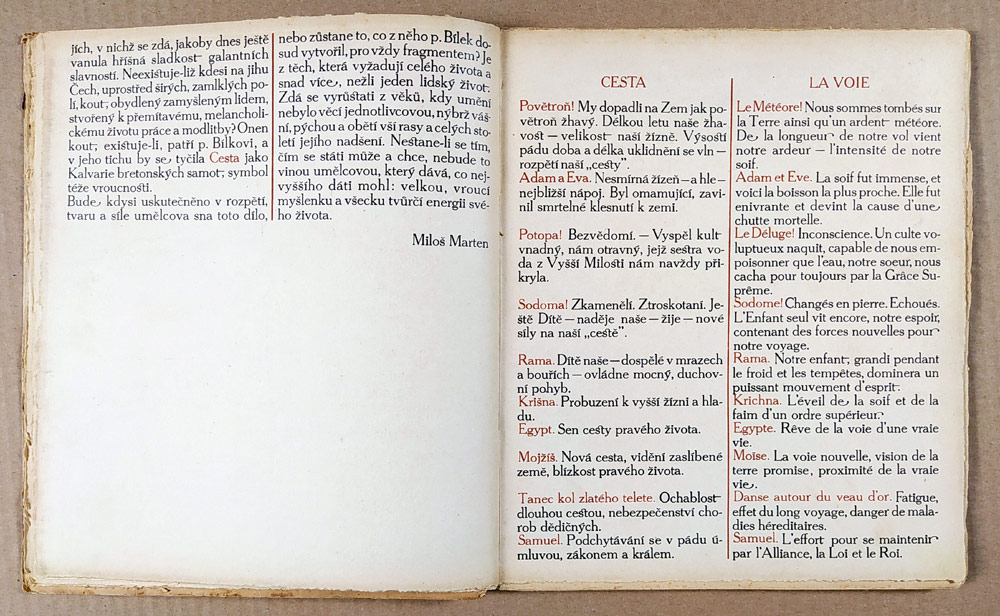 jích, v nichž se zdá, jakoby dnes ještě
vanula hříšná sladkost galantních
slavností. Neexistuje-liž kdesi na jihu
Čech, uprostřed širých, zamlklých po-
lí, kout, obydlený zamyšleným lidem,
stvořený k přemítavému, melancholi-
ckému životu práce a modlitby? Onen
kout, existuje-li, patří p. Bílkovi, a
v jeho tichu by se tyčila Cesta jako
Kalvarie bretonských samot, symbol
téže vroucnosti.
Bude kdysi uskutečněno v rozpětí,
tvaru a síle umělcova sna toto dílo,
nebo zůstane to, co z něho p. Bílek do-
sud vytvořil, pro vždy fragmentem? Je
z těch, která vyžadují celého života a
snad více, nežli jeden lidský život.
Zdá se vyrůstati z věků, kdy umění
nebylo věcí jednotlivcovou, nýbrž váš-
ní, pýchou a obětí vší rasy a celých sto-
letí jejího nadšení. Nestane-li se tím,
čím se státi může a chce, nebude to
vinou umělcovou, který dává, co nej-
vyššího dáti mohl: velkou, vroucí
myšlenku a všecku tvůrčí energii své-
ho života.
Miloš Marten
CESTA
Povětroň! My dopadli na Zem jak po-
větroň žhavý. Délkou letu naše žha-
vost — velikost naší žízně. Výsostí
pádu doba a délka uklidnění se vln —
rozpětí naší „cesty".
Adam a Eva. Nesmírná žízeň — a hle —
nejbližší nápoj. Byl omamující, zavi-
nil smrtelné klesnutí k zemi.
Potopa! Bezvědomí. — Vyspěl kult
vnadný, nám otravný, jejž sestra vo-
da z Vyšší Milosti nám navždy při-
kryla.
Sodoma! Zkamenělí. Ztroskotaní. Je-
ště Dítě — naděje naše — žije — nové
síly na naší „cestě".
Rama. Dítě naše — dospělé v mrazech
a bouřích — ovládne mocný, duchov-
ní pohyb.
Krišna. Probuzení k vyšší žízni a hla-
du.
Egypt. Sen cesty pravého života.
Mojžíš. Nová cesta, vidění zaslíbené
země, blízkost pravého života.
Tanec kol zlatého telete. Ochablost
dlouhou cestou, nebezpečenství cho-
rob dědičných.
Samuel. Podchytávání se v pádu ú-
mluvou, zákonem a králem.
LA VOIE
Le Météore! Nous sommes tombés sur
la Terre ainsi qu'un ardent météore.
De la longueur de notre vol vient
notre ardeur — l'intensité de notre
soif.
Adam et Eve. La soif fut immense, et
voici la boisson la plus proche. Elle fut
enivrante et devint la cause d'une
chutte mortelle.
Le Déluge! Inconscience. Un culte vo-
luptueux naquit, capable de nous em-
poisonner que l'eau, notre soeur, nous
cacha pour toujours par la Grâce Su-
prême.
Sodome! Changés en pierre. Echoués.
L'Enfant seul vit encore, notre espoir,
contenant des forces nouvelles pour
notre voyage.
Rama. Notre enfant, grandi pendant
le froid et les tempêtes, dominera un
puissant mouvement d'esprit.
Krichna. L'éveil de la soif et de la
faim d'un ordre supérieur.
Egypte. Rêve de la voie d'une vraie
vie.
Moïse. La voie nouvelle, vision de la
terre promise, proximité de la vraie
vie.
Danse autour du veau d'or. Fatigue,
effet du long voyage, danger de mala-
dies héreditaires.
Samuel. L'effort pour se maintenir
par l'Alliance, la Loi et le Roi.